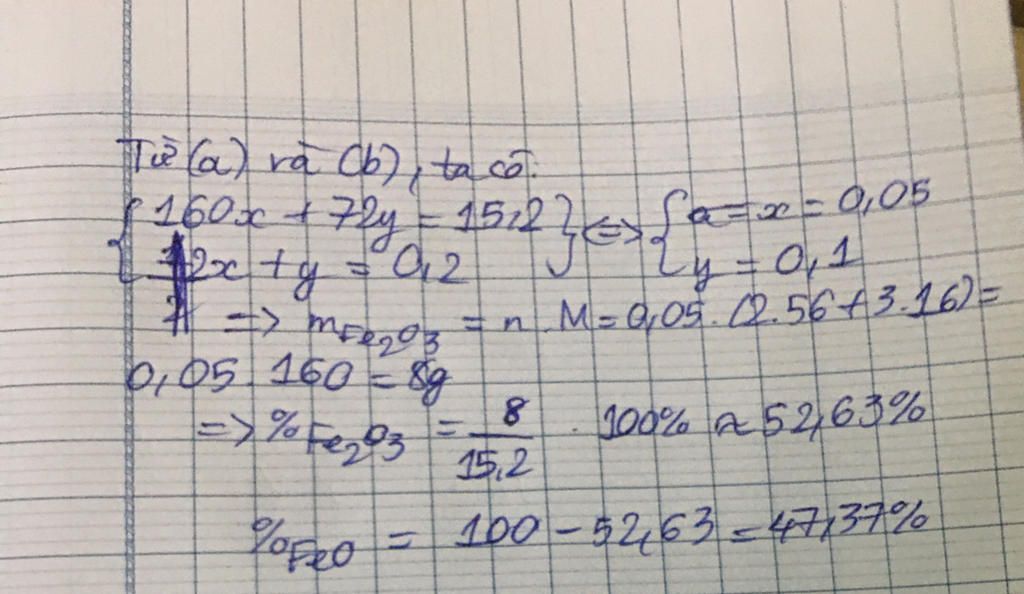 Từ (a) và (b), ta có:
{ 160x + 72y = 15,2 } <=> { x = 0,05
{ 2x + y = 0,2 } { y = 0,1
=> mFe2O3 = n . M = 0,05 . (2.56 + 3.16) =
0,05 . 160 = 8g
=> %Fe2O3 = 8/15,2 . 100% ≈ 52,63%
%FeO = 100 - 52,63 = 47,37%